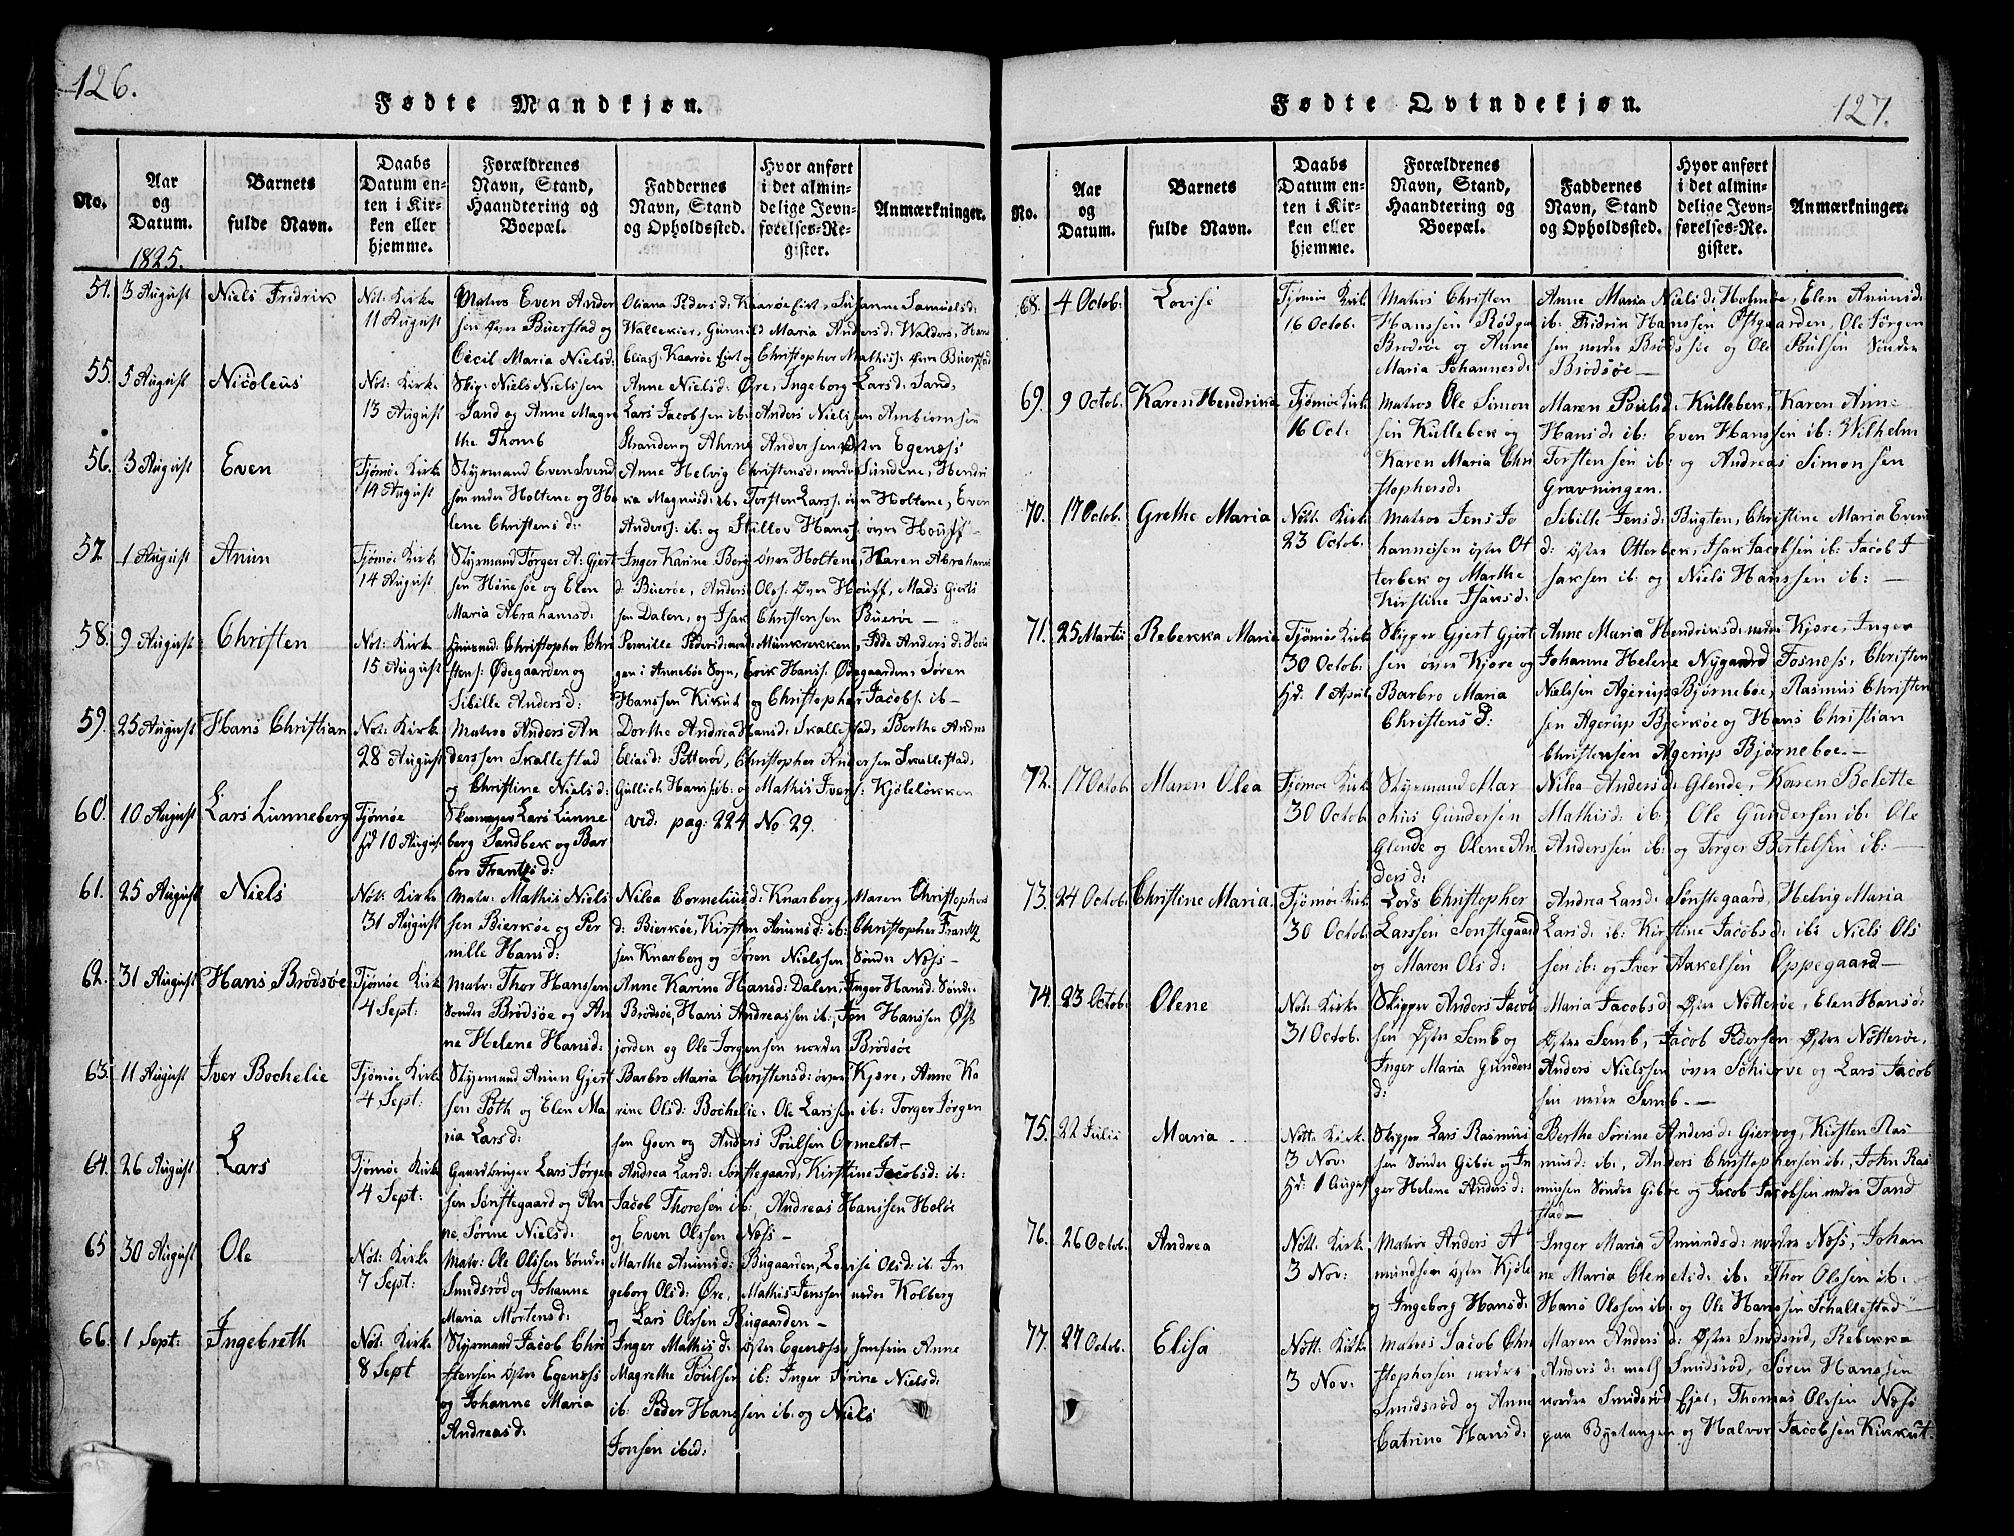 126.
Fødte Mandkjøn.
No.
Aar og Datum.
Barnets fulde Navn.
Daabs Datum enten i Kirken eller hjemme.
Forældrenes Navn, Stand, Haandtering og Boepæl.
Faddernes Navn, Stand og Opholdssted.
Hvor anført i det almindelige Jevnførelses-Register.
Anmærkninger.
1825.
54. 3 August Niels Fridrik
Not: Kirke
11 August
Matros Even Ander
sen Øvre Buerstad og
Cecil Maria Nielsd:
Oliana Pedersd: Kaarøe Eiet, Susanne Samuelsd:
Wallekier, Gunnild Maria Andersd: Walders, Hans
Eliass: Kaarøe Eiet og Christopher Mathiss: Buerstad
55. 5 August Nicoleus
Not: Kirke
13 August
Skip: Niels Nielssen
Sand og Anne Magre
the Thomb
Anne Nielsd: Øre, Ingeborg Larsd: Sand,
Lars Jacobsen ib: Anders Nielsen Ambiørnsen
Stranden og Ahrne Andersen Østre Egenæss
56. 3 August Even
Tjømøe Kirke
14 August
Styrmand Even Svend
sen nedre Holtene og He
lene Christensd:
Anne Helvig Christensd: nordre Sundene, Hendri
ka Magnusd: ib. Torsten Larss: øvre Holtene, Even
Anderss: ib: og Stillov Hanss: øvre Houff
57. 1 August Anun
Tjømøe Kirke
14 August
Styrmand Tørger A: Gjert
sen Hønesøe og Elen
Maria Abrahamsd:
Inger Karine Berg øvre Holtene, Karen Abrahams
d: Buerøe, Anders Olss. Øvre Houff, Mads Gierts
sen Dalen, og Isak Christensen Buerøe
58. 9 August Christen
Not: Kirke
15 August
Huusmd: Christopher Chri
stens: Ødegaarden og
Sibille Andersd:
Pernille Pedersd: Munkerekken, Andersd: Hou
gen i Arnebøe Sogn, Erik Hanss: Ødegaarden, Søren
Hanssen Kikut og Christopher Jacobs: ib
59. 25 August Hans Christian
Not: Kirke
28 August
Matros Anders An
derssen Skallestad
og Christine Nielsd:
Dorthe Andrea Hansd: Skallestad, Berthe Andrea
Eliasd: Potterød, Christopher Andersen Skallestad,
Gullich Hans: ib: og Mathis Ivers: Kjøleløkken
60. 10 August Lars Lunneberg
Tjømøe
Hd 10 August
Skomager Lars Lunne
berg Sandbek og Bar
bro Frantzd:
vid: pag: 224 No 29.
61. 25 August Niels
Nott: Kirke
31 August
Matr: Mathis Niels
sen Bierkøe og Per
nille Hansd:
Nilea Corneliusd: Knarberg, Maren Christophers
d: Bierkøe, Kirsten Anunsd: ib: Christopher Frantz
sen Knarberg og Søren Nielssen Søndre Næss
62. 31 August Hans Brødsøe
Tjømøe Kirke
4 Sept:
Matr: Thor Hanssen
Søndre Brødsøe og An
ne Helene Hansd:
Anne Karine Hansd: Dalen, Inger Hansd: Sønd:
Brødsøe, Hans Andreassen ib:, Jon Hanssen Øst
jorden og Ole Jørgensen nordre Brødsøe
63. 11 August Iver Bochelie
Tjømøe Kirke
4 Sept:
Styrmand Anun Gjert
sen Poth og Elen Ma
ria Larsd:
Barbro Maria Christensd: øvre Kjære, Anne Ka
rine Olsd: Bochelie, Ole Larssen ib: Torger Jørgen
sen Goen og Anders Poulsen Ormelet
64. 26 August Lars
Tjømøe Kirke
4 Sept:
Gaardbruger Lars Jørgen
sen Sønstegaard og An
ne Sørine Nielsd:
Andrea Larsd: Sønstegaard, Kirstine Jacobsd: ib:
Jacob Thoresen ib:, Andreas Hanssen Holøe
og Even Olssen Næss
65 30 August Ole
Not: Kirke
7 Sept:
Matr: Ole Olssen Søndre
Smidsrød og Johanne
Maria Mortensd:
Marthe Anunsd: Bugaarden, Lovise Olsd: ib: In
geborg Olsd: Øre, Mathis Jenssen nedre Kolberg
og Lars Olssen Bugaarden
66. 1 Sept: Ingebreth
Not: Kirke
8 Sept
Styrmand Jacob Chri
stensen Østre Egenæss
og Johanne Maria
Andreasd:
Inger Mathisd: Østre Egenæss, Jomfru Anne
Magrethe Poulsen ib: Inger Sørine Nielsd:
ib: Peder Hanssen ib: og Niels
Jonsen ibid:
127.
Fødte Qvindekjøn.
No.
Aar og Datum.
Barnets fulde Navn.
Daabs Datum enten i Kirken eller hjemme.
Forældrenes Navn, Stand, Haandtering og Boepæl.
Faddernes Navn, Stand og Opholdssted.
Hvor anført i det almindelige Jevnførelses-Register.
Anmærkninger.
68. 4 Octob: Lovise
Tjømøe Kirk
16 Octob.
Matros Christen
Hanssen Rødge
Brødsøe og Anne
Maria Johannesd:
Anne Maria Nielsd: Holmøe, Elen Anunsd:
ib: Fridrik Hanssen Østgaarden, Ole Jørgen
sen nordre Brødsøe og Ole Poulsen Søndre
Brødsøe
69. 9 Octob. Karen Hendrine
Tjømøe Kirk:
16 Oct:
Matros Ole Simon
sen Kullebek og
Karen Maria Chri
stophersd:
Maren Poulsd: Kullebek, Karen Anne
Hansd: ib: Even Hanssen ib: Wilhelm
Torstensen ib: og Andreas Simonsen
Gravningen.
70. 17 Octob. Grethe Maria
Nott: Kirk:
23 Octob.
Matros Jens Jo
hannesen Østre Ot
terbek og Marthe
Kirstine Isaksd:
Sibille Jensd: Bugten, Christine Maria Evens
d: Østre Otterbek, Isak Jacobsen ib: Jacob I
saksen ib: og Niels Hanssen ib:
71. 25 Martii Rebekka Maria
Tjømøe Kirk:
30 Octob.
Hd: 1 April
Skipper Gjert Gjert
sen øvre Kjøre og
Barbro Maria
Christensd:
Anne Maria Hendriksd: nedre Kjøre, Inger
Johanne Helene Nygaard Fosness, Christen
Nielssen Agerup Bjørnebøe, Rasmus Christen
sen Agerup Bjerkøe og Hans Christian
Christensen Agerup Bjørneboe.
72. 17 Octob. Maren Olea
Tjømøe Kirk:
30 Octob
Styrmand Mar
chus Gundersen
Glende og Olene An
dersd:
Nilea Andersd: Glende, Karen Bolette
Mathisd: ib: Ole Gundersen ib: Ole
Anderssen ib: og Torger Bertelsen ib:
73. 24 Octob. Christine Maria.
Tjømøe Kirk
30 Octob.
Lods Christopher
Larssen Sønstegaard
og Maren Olsd:
Andrea Larsd: Sønstegaard, Helvig Maria
Larsd: ib: Kirstine Jacobsd: ib: Niels Ols
sen ib: og Iver Axelsen Oppegaard
74. 23 Octob. Olene
Not: Kirk:
31 Octob.
Skipper Anders Jacob
sen Østre Semb og
Inger Maria Gunders
d:
Maria Jacobsd: Østre Nøtterøe, Elen Hansd:
Østre Semb, Jacob Pedersen Østre Nøtterøe,
Anders Nielssen øvre Schierve og Lars Jacob
sen nedre Semb.
75. 22 Julii Maria
Nott: Kirk:
3 Nov:
Hd: 1 August
Skipper Lars Rasmus
sen Søndre Gibøe og In
ger Helene Andersd:
Berthe Sørine Andersd: Giervog, Kirsten Ras
musd: ib:, Anders Christophersen ib:, John Ras
mussen Søndre Gibøe og Jacob Jacobsen nedre Tand
stad
76. 26 Octob. Andrea
Nött: Kirk:
3 Nov:
Matros Anders A
mundsen Østre Kjøle
og Ingeborg Hansd:
Inger Maria Amundsd: nordre Næss, Johan
ne Maria Clemetsd: ib. Thor Olssen ib:
Hans Olssen ib: og Ole Hanssen Schallestad
77. 27 Octob. Elisa
Nött: Kirk:
3 Nov:
Matros Jacob Chri
stophersen nordre
Smidsrød og Anne
Catrine Hansd:
Maren Andersd: Østre Smidsrød, Rebekka
Andersd: mell: Smidsrød, Søren Hanssen
nordre Smidsrød Ejet, Thomas Olssen Næss
paa Byetangen og Halvor Jacobsen Kikkut.